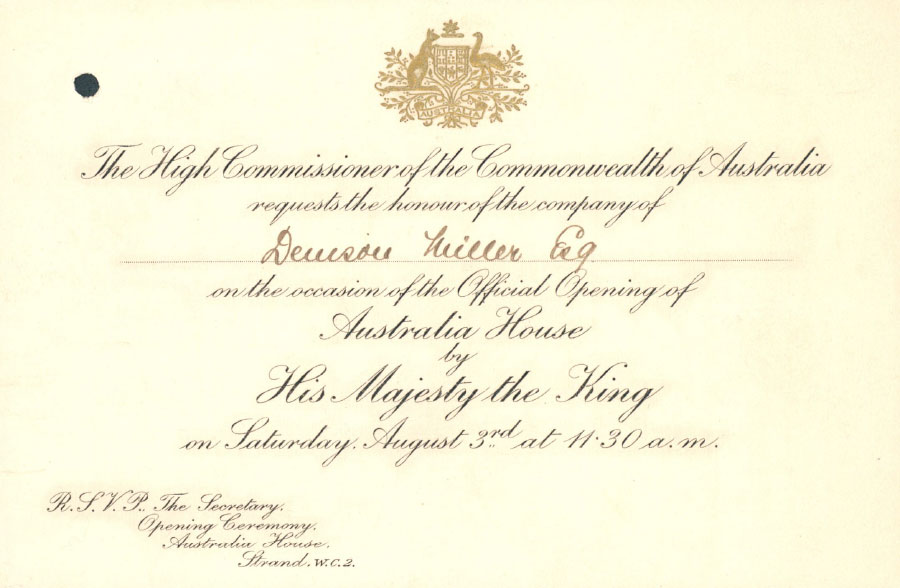 AUSTRALIA
The High Commissioner of the Commonwealth of Australia
requests the honour of the company of
Denison Miller Esq
on the occasion of the Official Opening of
Australia House
by
His Majesty the King
on Saturday, August 3rd at 11·30 a.m.
R.S.V.P. The Secretary,
Opening Ceremony,
Australia House,
Strand. W.C.2.